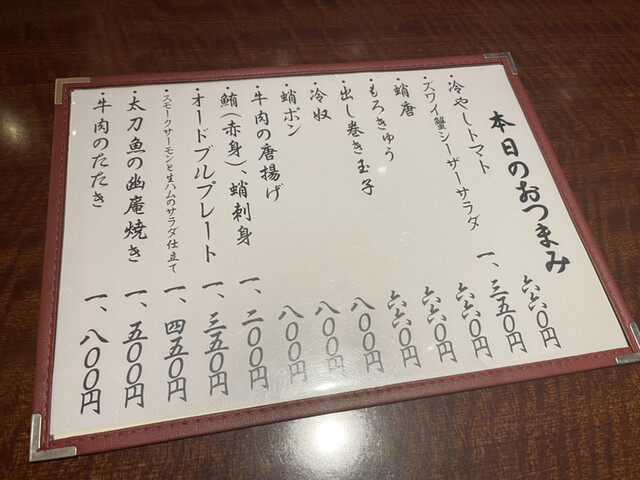 本日のおつまみ
・冷やしトマト 六六〇円
・ズワイ蟹シーザーサラダ 一、三五〇円
・蛸唐 六六〇円
・もろきゅう 六六〇円
・出し巻き玉子 六六〇円
・冷奴 八〇〇円
・蛸ポン 八〇〇円
・牛肉の唐揚げ 八〇〇円
・鮪(赤身)、蛸刺身 一、二〇〇円
・オードブルプレート 一、三五〇円
・スモークサーモンと生ハムのサラダ仕立て 一、四五〇円
・太刀魚の幽庵焼き 一、五〇〇円
・牛肉のたたき 一、八〇〇円